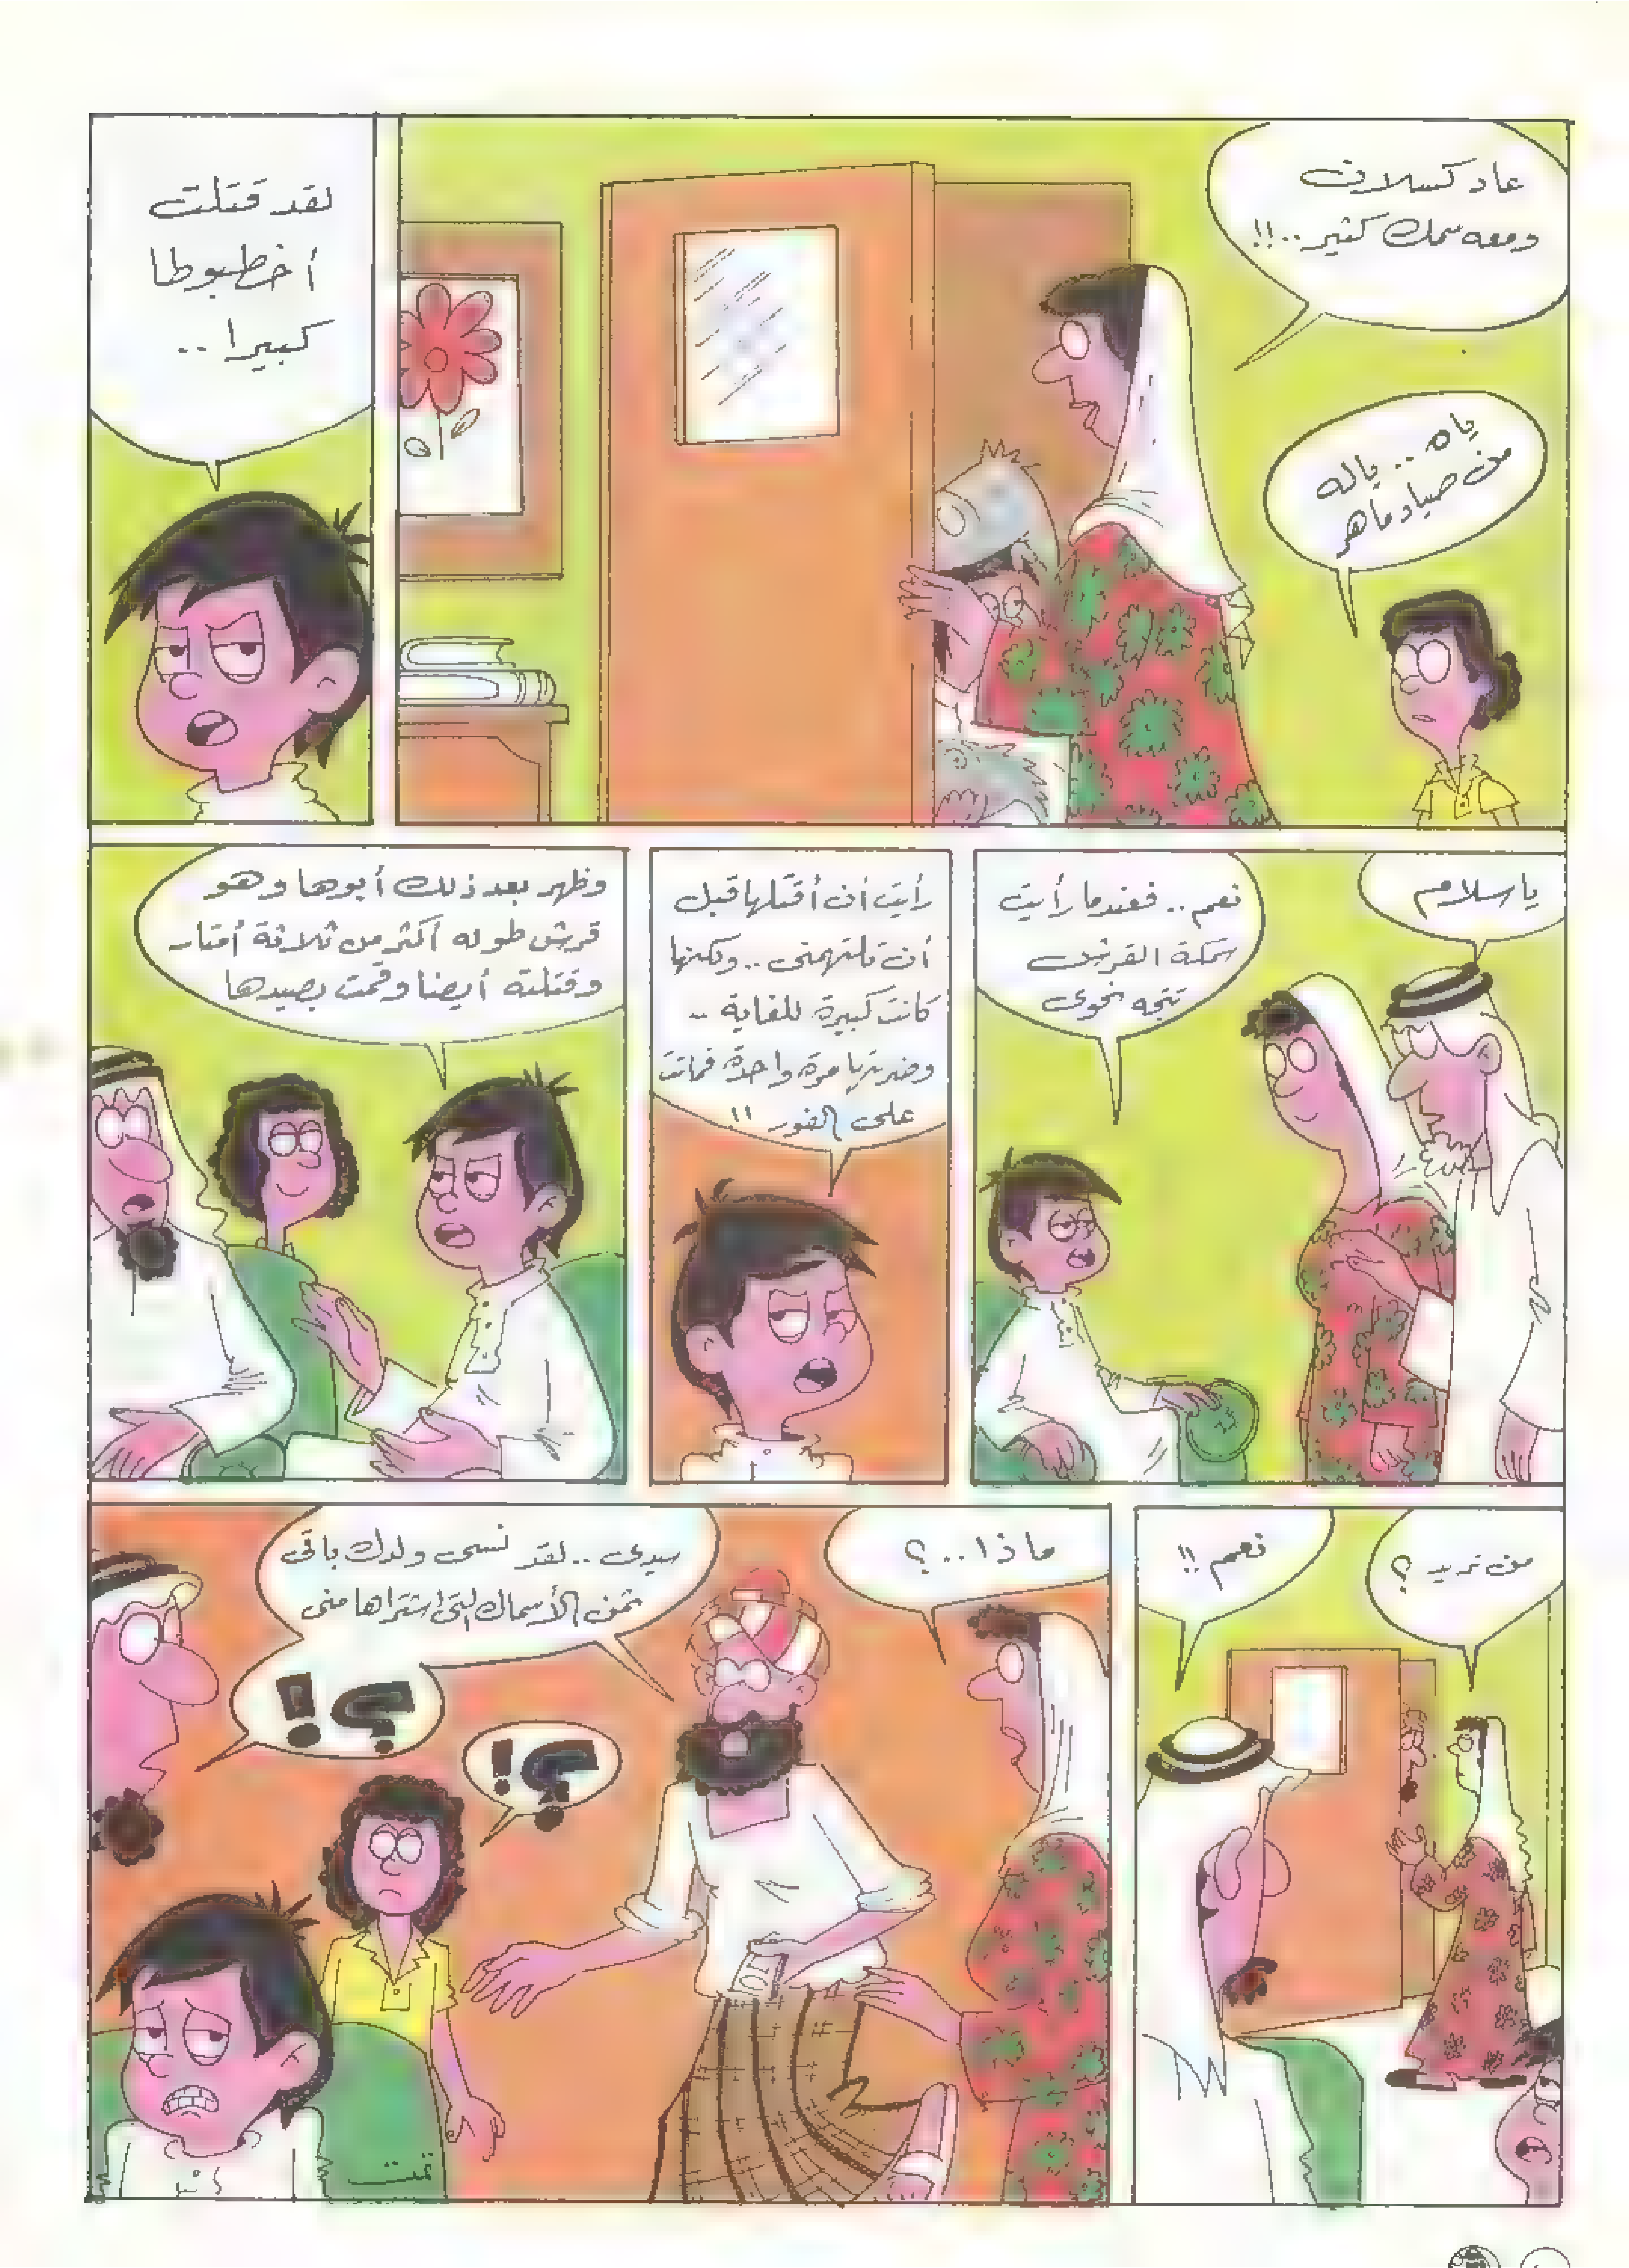 عاد كسلان
ومعه سمك كثير..!!
ياه.. ياله
من صياد ماهر
لقد قتلت
أخطبوطا
كبيرا..
ياسلام
نعم.. فعندما رأيت
سمكة القرش
تتجه نحوى
رأيت أن أقتلها قبل
أن تلتهمنى.. ولكنها
كانت كبيرة للغاية..
وضربتها مرة واحدة فماتت
على الفور !!
وظهر بعد ذلك أبوها وهو
قرش طوله أكثر من ثلاثة أمتار
وقتلته أيضا وقمت بصيدها
من تريد ؟
نعم !!
ماذا..؟
سيدى.. لقد نسى ولدك باقى
ثمن الأسماك التى اشتراها منى
؟!
؟!
تمت